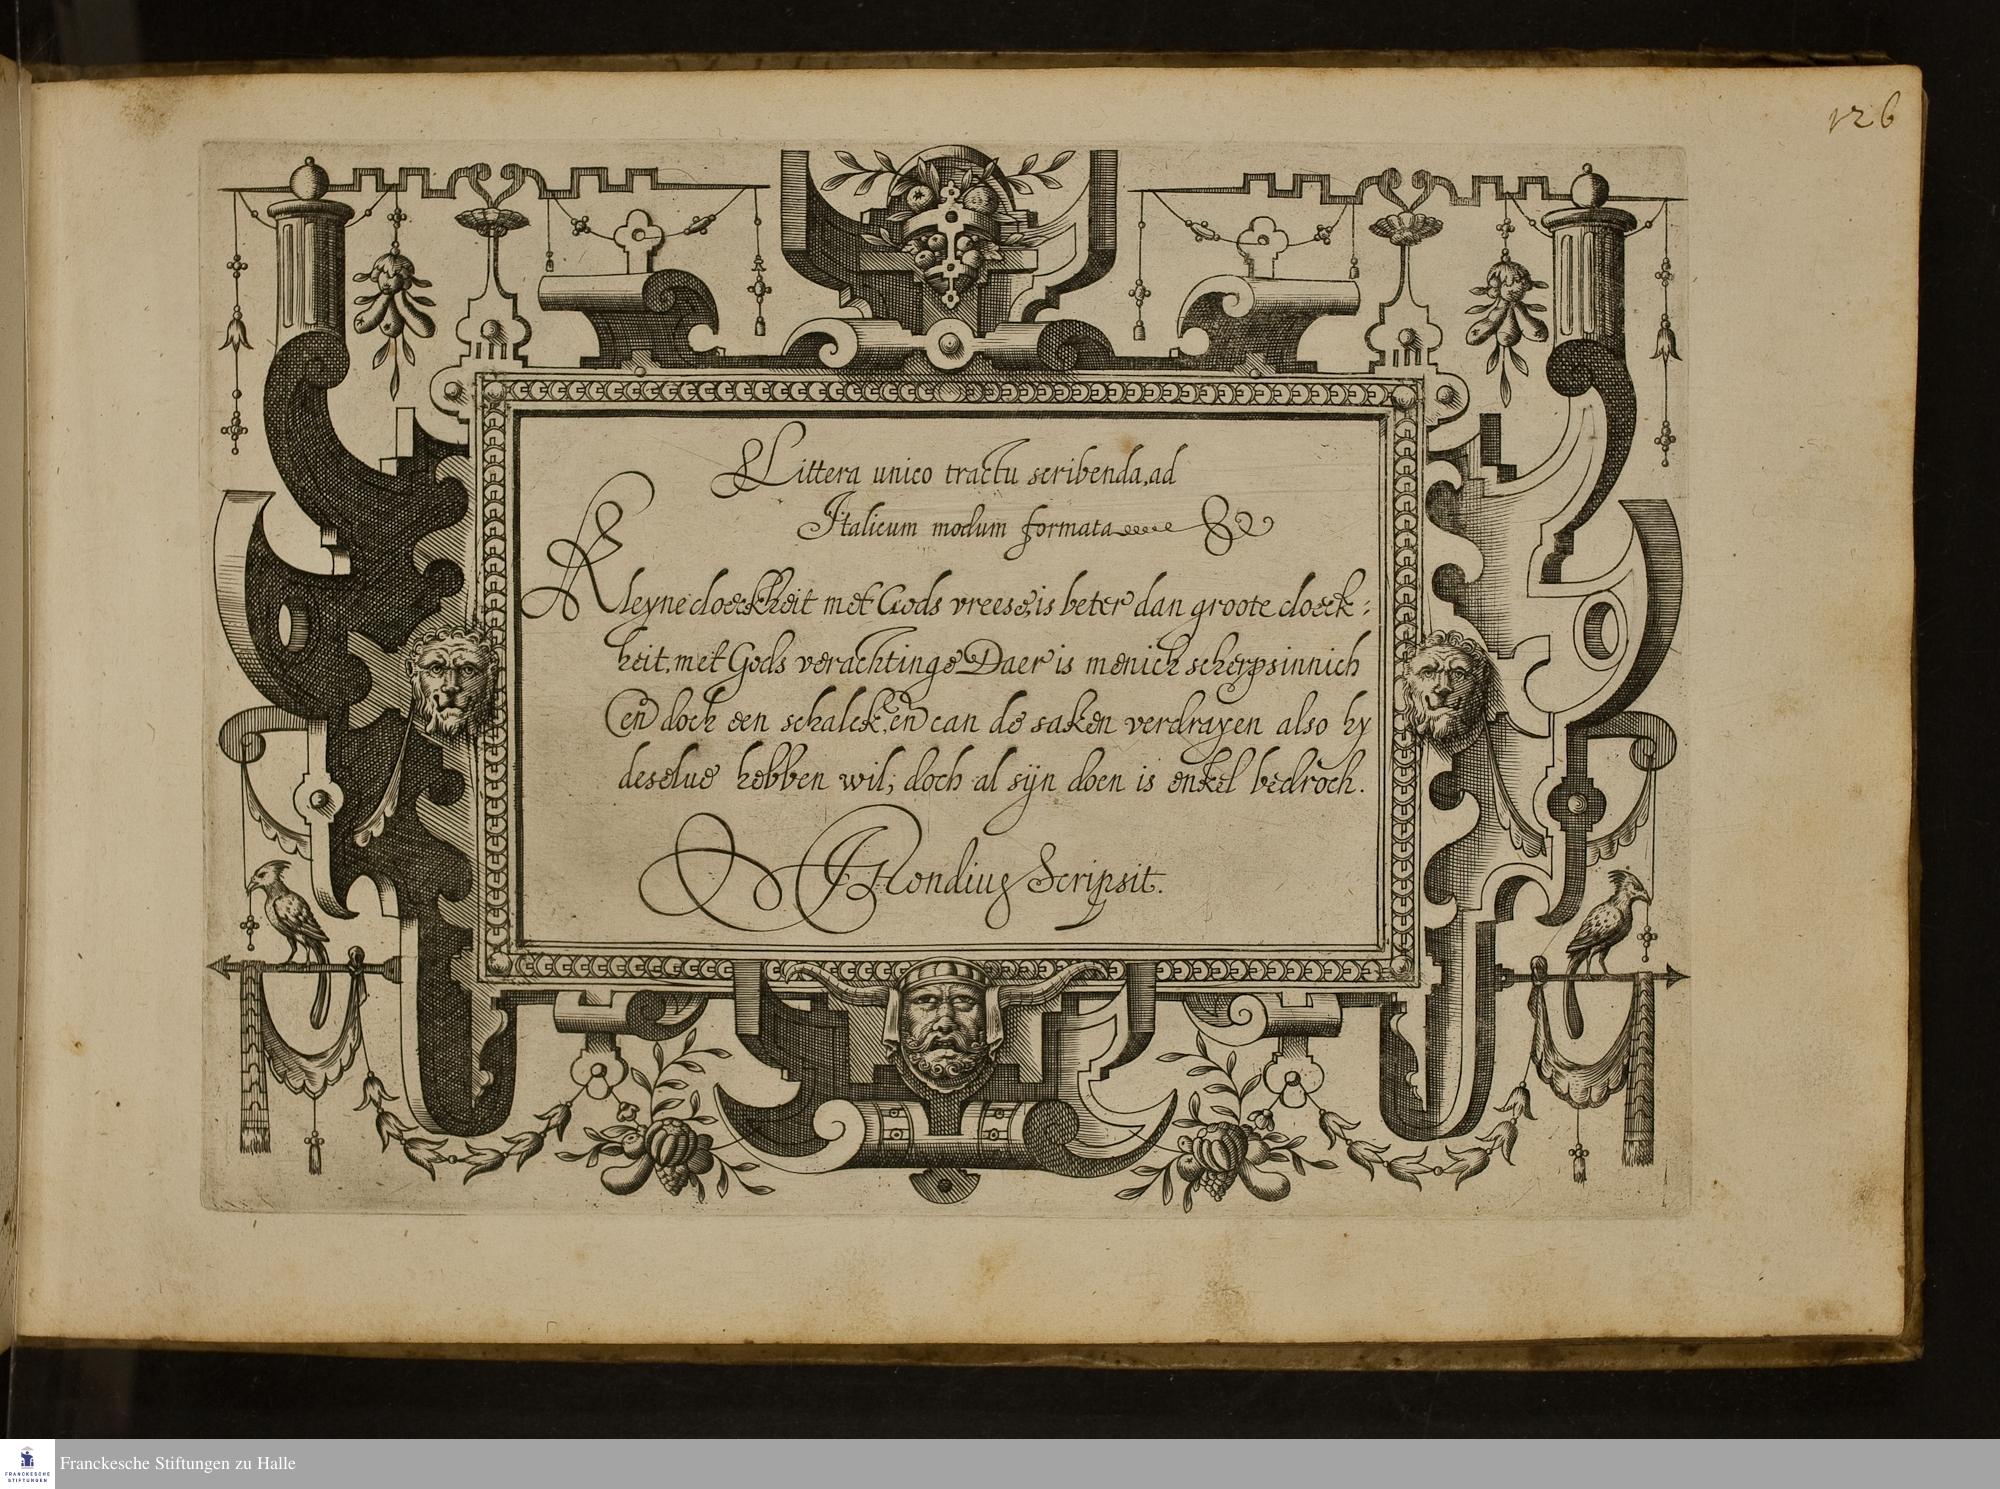 126
Littera unico tractu scribenda, ad
Italicum modum formata
Kleyne cloeckheit met Gods vreese, is beter dan groote cloeck:
heit, met Gods verachtinge Daer is menich scherpsinnich
en̄ doch een schalck, en̄ can de saken verdrayen also hy
deselue hebben wil, doch al sijn doen is enkel bedroch.
IHondius Scripsit.
FRANCKESCHE
STIFTUNGEN
Franckesche Stiftungen zu Halle